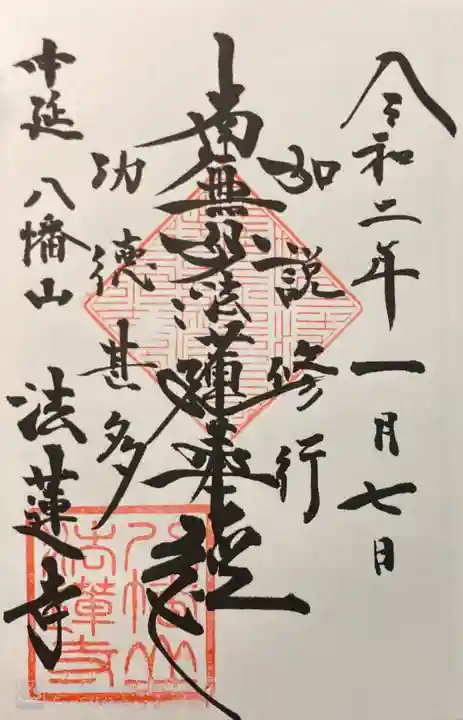 令和二年一月七日
如説修行
南無妙法蓮華経
功徳甚多
中延 八幡山 法蓮寺
八幡山
法蓮寺